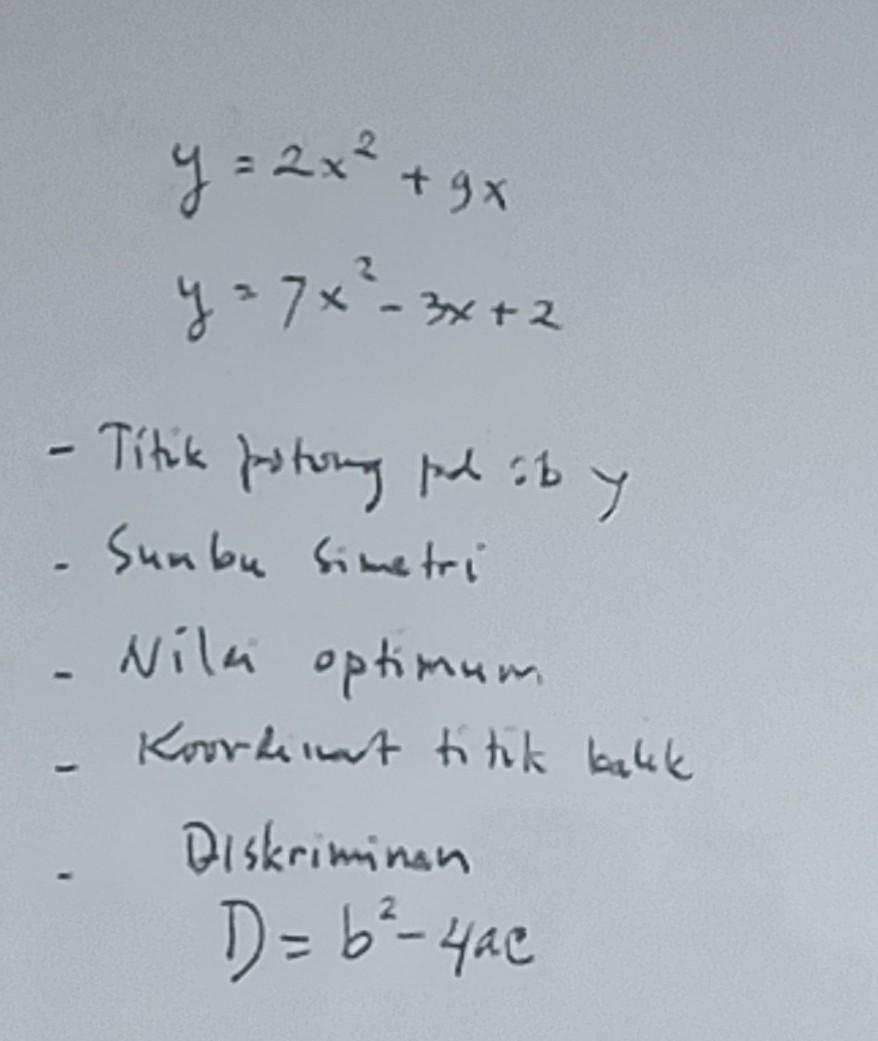 y = 2x² + 9x
y = 7x² - 3x + 2
- Titik potong pd sb y
- Sumbu Simetri
- Nilai optimum
- Koordinat titik balik
- Diskriminan
D = b² - 4ac